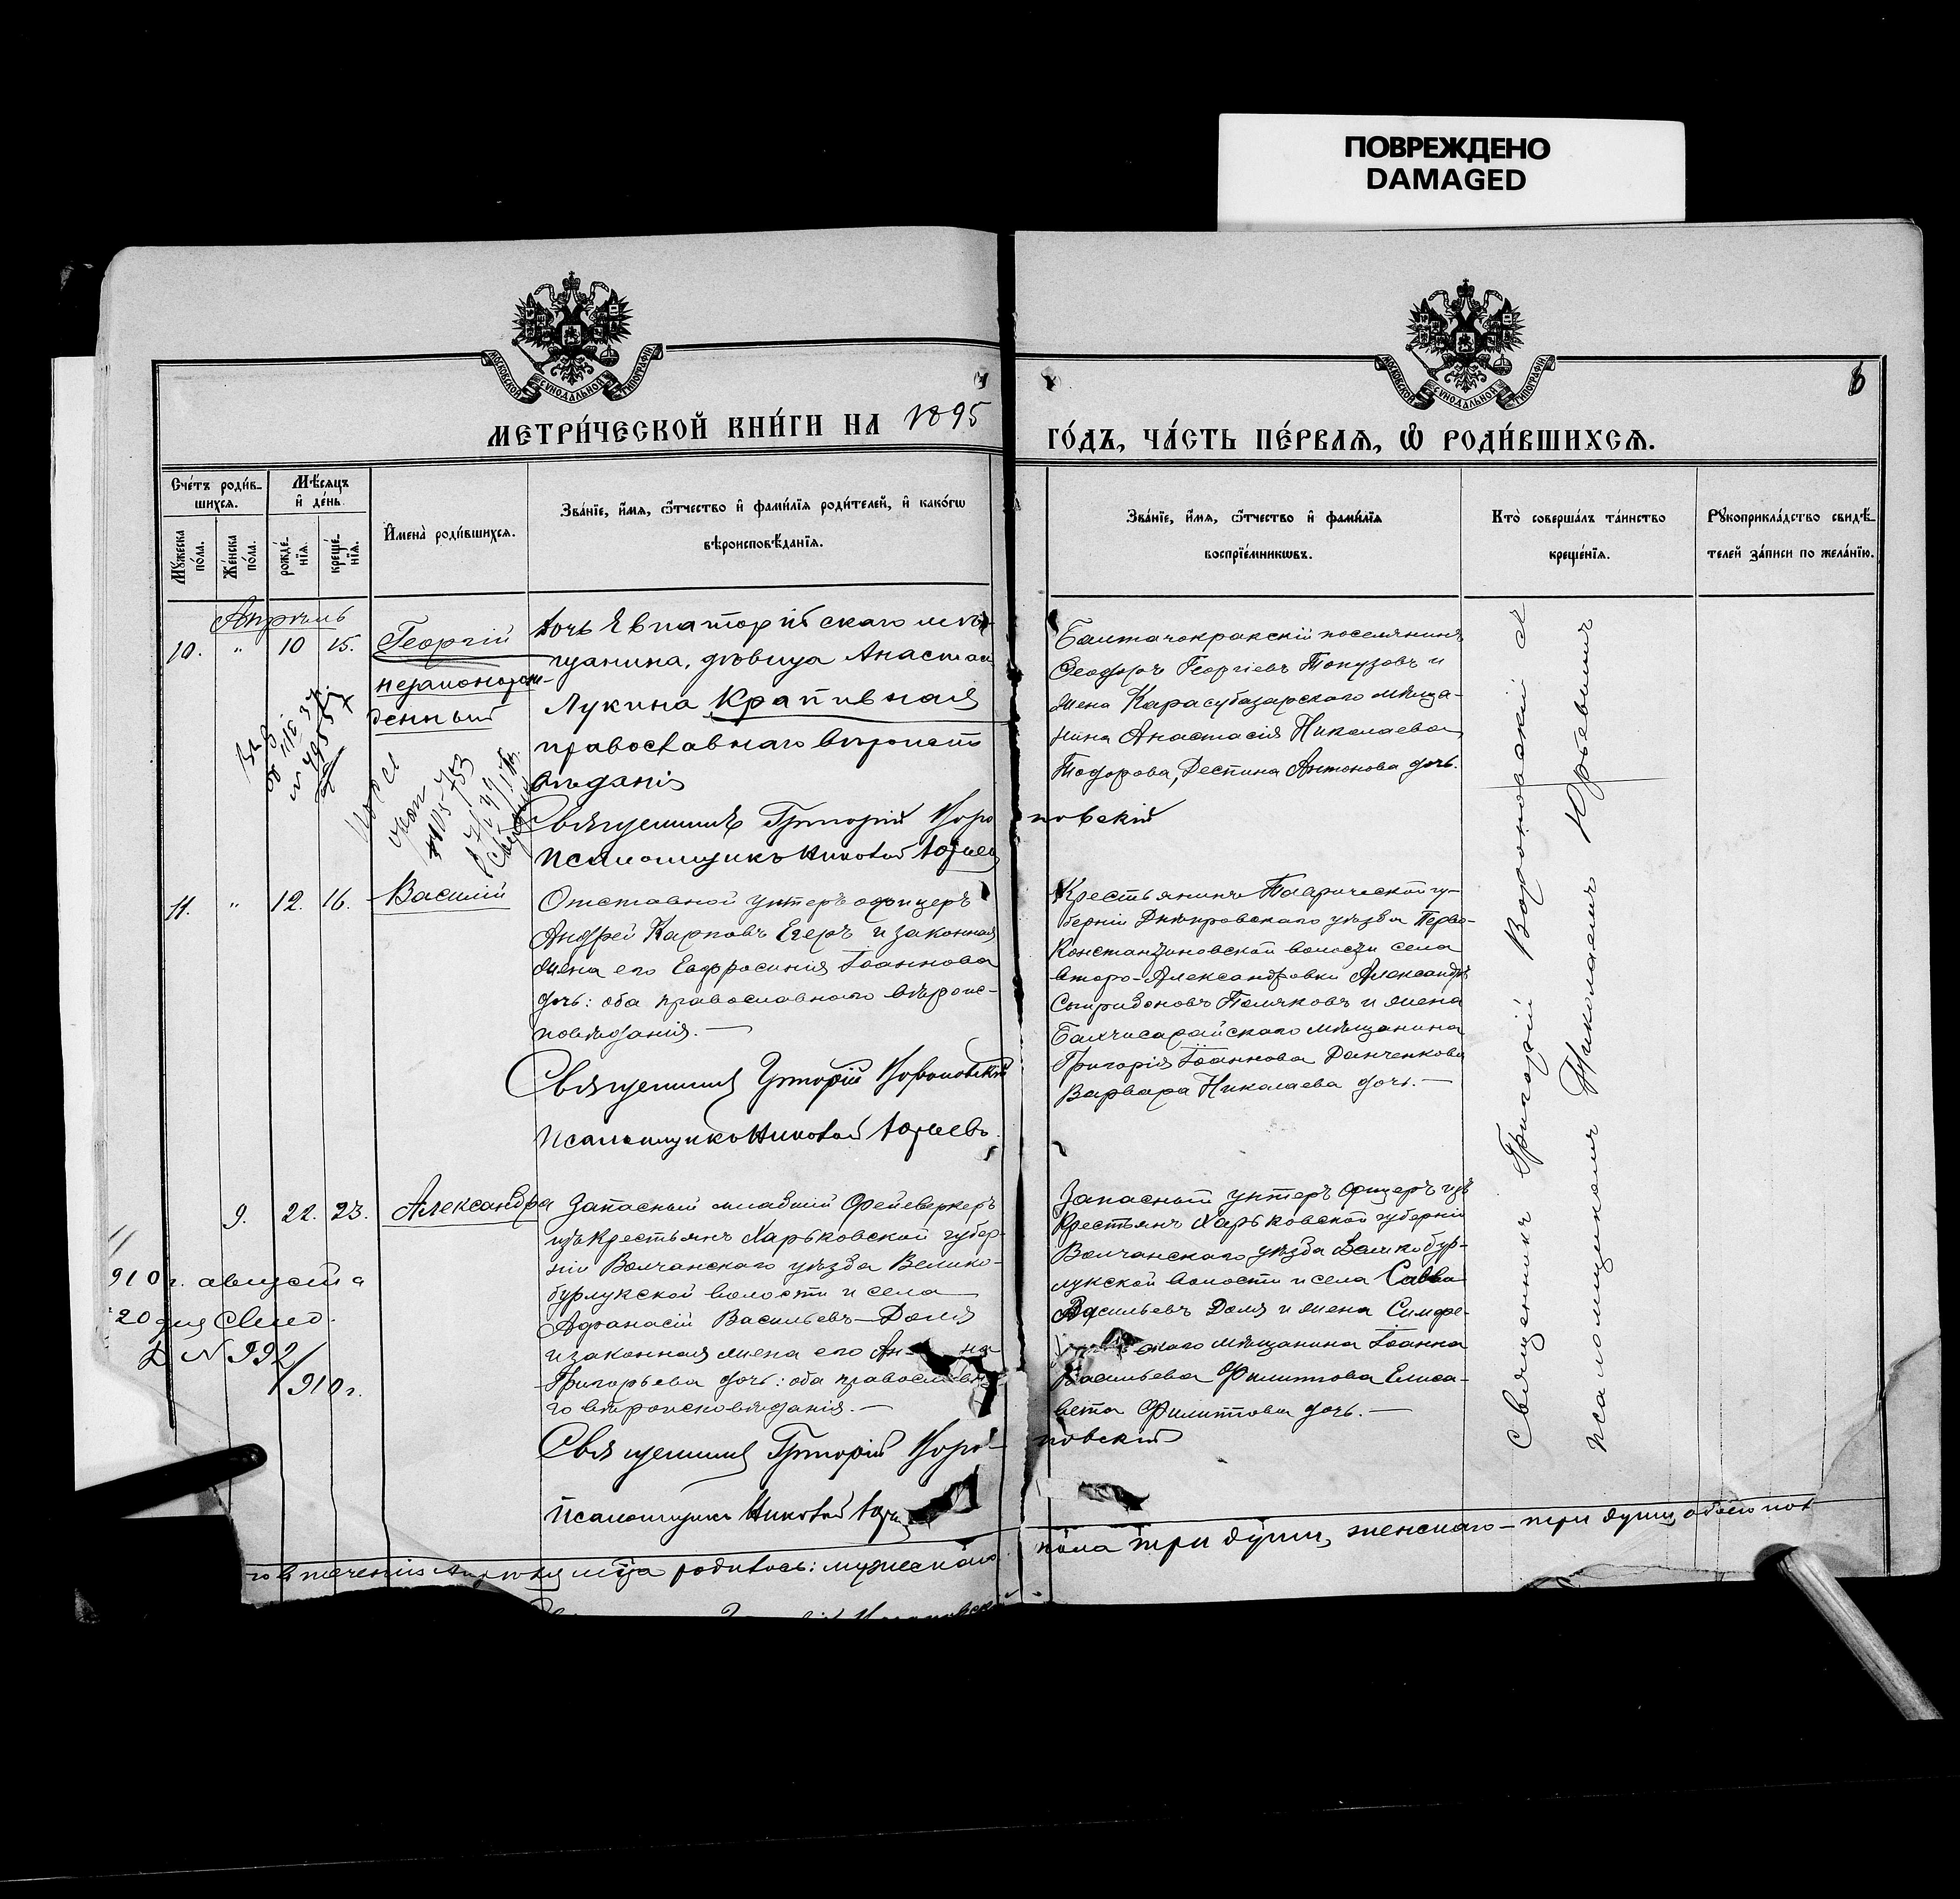 ПОВРЕЖДЕНО
DAMAGED
МОСКОВСКОЙ СУНОДАЛЬНОЙ ТИПОГРАФІИ
МОСКОВСКОЙ СУНОДАЛЬНОЙ ТИПОГРАФІИ
МЕТРИ́ЧЕСКОЙ КНИ́ГИ НА 1895
ГО́ДЪ, ЧА́СТЬ ПЕ́РВАѦ, Ѡ҆ РОДИ́ВШИХСѦ.
Сче́тъ роди́в-
шихсѧ.
Мѣ́сѧцъ
и҆ де́нь
Мꙋ́жеска по́ла.
Же́нска по́ла.
рожде́-нїѧ.
креще́-нїѧ.
И҆мена̀ роди́вшихсѧ.
Зва́нїе, и҆́мѧ, ѻ҆́тчество и҆ фами́лїѧ роди́телей, и҆ како́гѡ
вѣроисповѣ́данїѧ.
Зва́нїе, и҆́мѧ, ѻ҆́тчество и҆ фами́лїѧ
воспрїе́мникѡвъ.
Кто̀ соверша́лъ та́инство
креще́нїѧ.
Рꙋкоприкла́дство свидѣ́-
телей за́писи по жела́нїю.
Апрѣль
10. " 10 15. Георгій
незаконорож-
денный
дочь Евпаторійскаго мѣ-
щанина, дѣвица Анастасія
Лукина Крапивная
православнаго вѣроиспо
вѣданія
Священникъ Григорій Воро новскій
Псаломщикъ Николай Юрьев
Балтачокракскій поселянинъ
Ѳеодоръ Георгіевъ Токузовъ и
жена Карасубазарскаго мѣща-
нина Анастасія Николаева
Тодорова, Деспина Антонова дочь.
11. " 12. 16. Василій
Отставной унтеръ офицеръ
Андрей Карповъ Егеръ и законная
жена его Евфросинія Іоаннова
дочь: оба православнаго вѣроис-
повѣданія.
Священникъ Григорій Вороновскій
Псаломщикъ Николай Юрьевъ.
Крестьянинъ Таврической гу-
берніи Днѣпровскаго уѣзда Перво-
Константиновской волости села
Второ-Александровки Александръ
Спиридоновъ Поляковъ и жена
Бахчисарайскаго мѣщанина
Григорія Іоаннова Данченкова
Варвара Николаева дочь.
9. 22. 23. Александра
Запасный младшій Фейеверкеръ
изъ крестьянъ Харьковской губер-
ніи Волчанскаго уѣзда Велико-
бурлукской волости и села
Афанасій Васильевъ Доля
и законная жена его Ан на
Григорьева дочь: оба православна
го вѣроисповѣданія.
Священникъ Григорій Воро новскій
Псаломщикъ Николай Юрь
Запасный унтеръ офицеръ изъ
Крестьянъ Харьковской губерніи
Волчанскаго уѣзда Великобур-
лукской волости и села Савва
Васильевъ Доля и жена Симфе-
скаго мѣщанина Іоанна
Васильева Филиппова Елиса-
вета Филиппова дочь.
910 г. августа
20 дня
№ 992
/910 г.
Священникъ Григорій Вороновскій
Псаломщикъ Николай Юрьевъ
го въ теченіи Апрѣля м-ца родилось: мужескаго пола три души, женскаго – три души, обоего пол